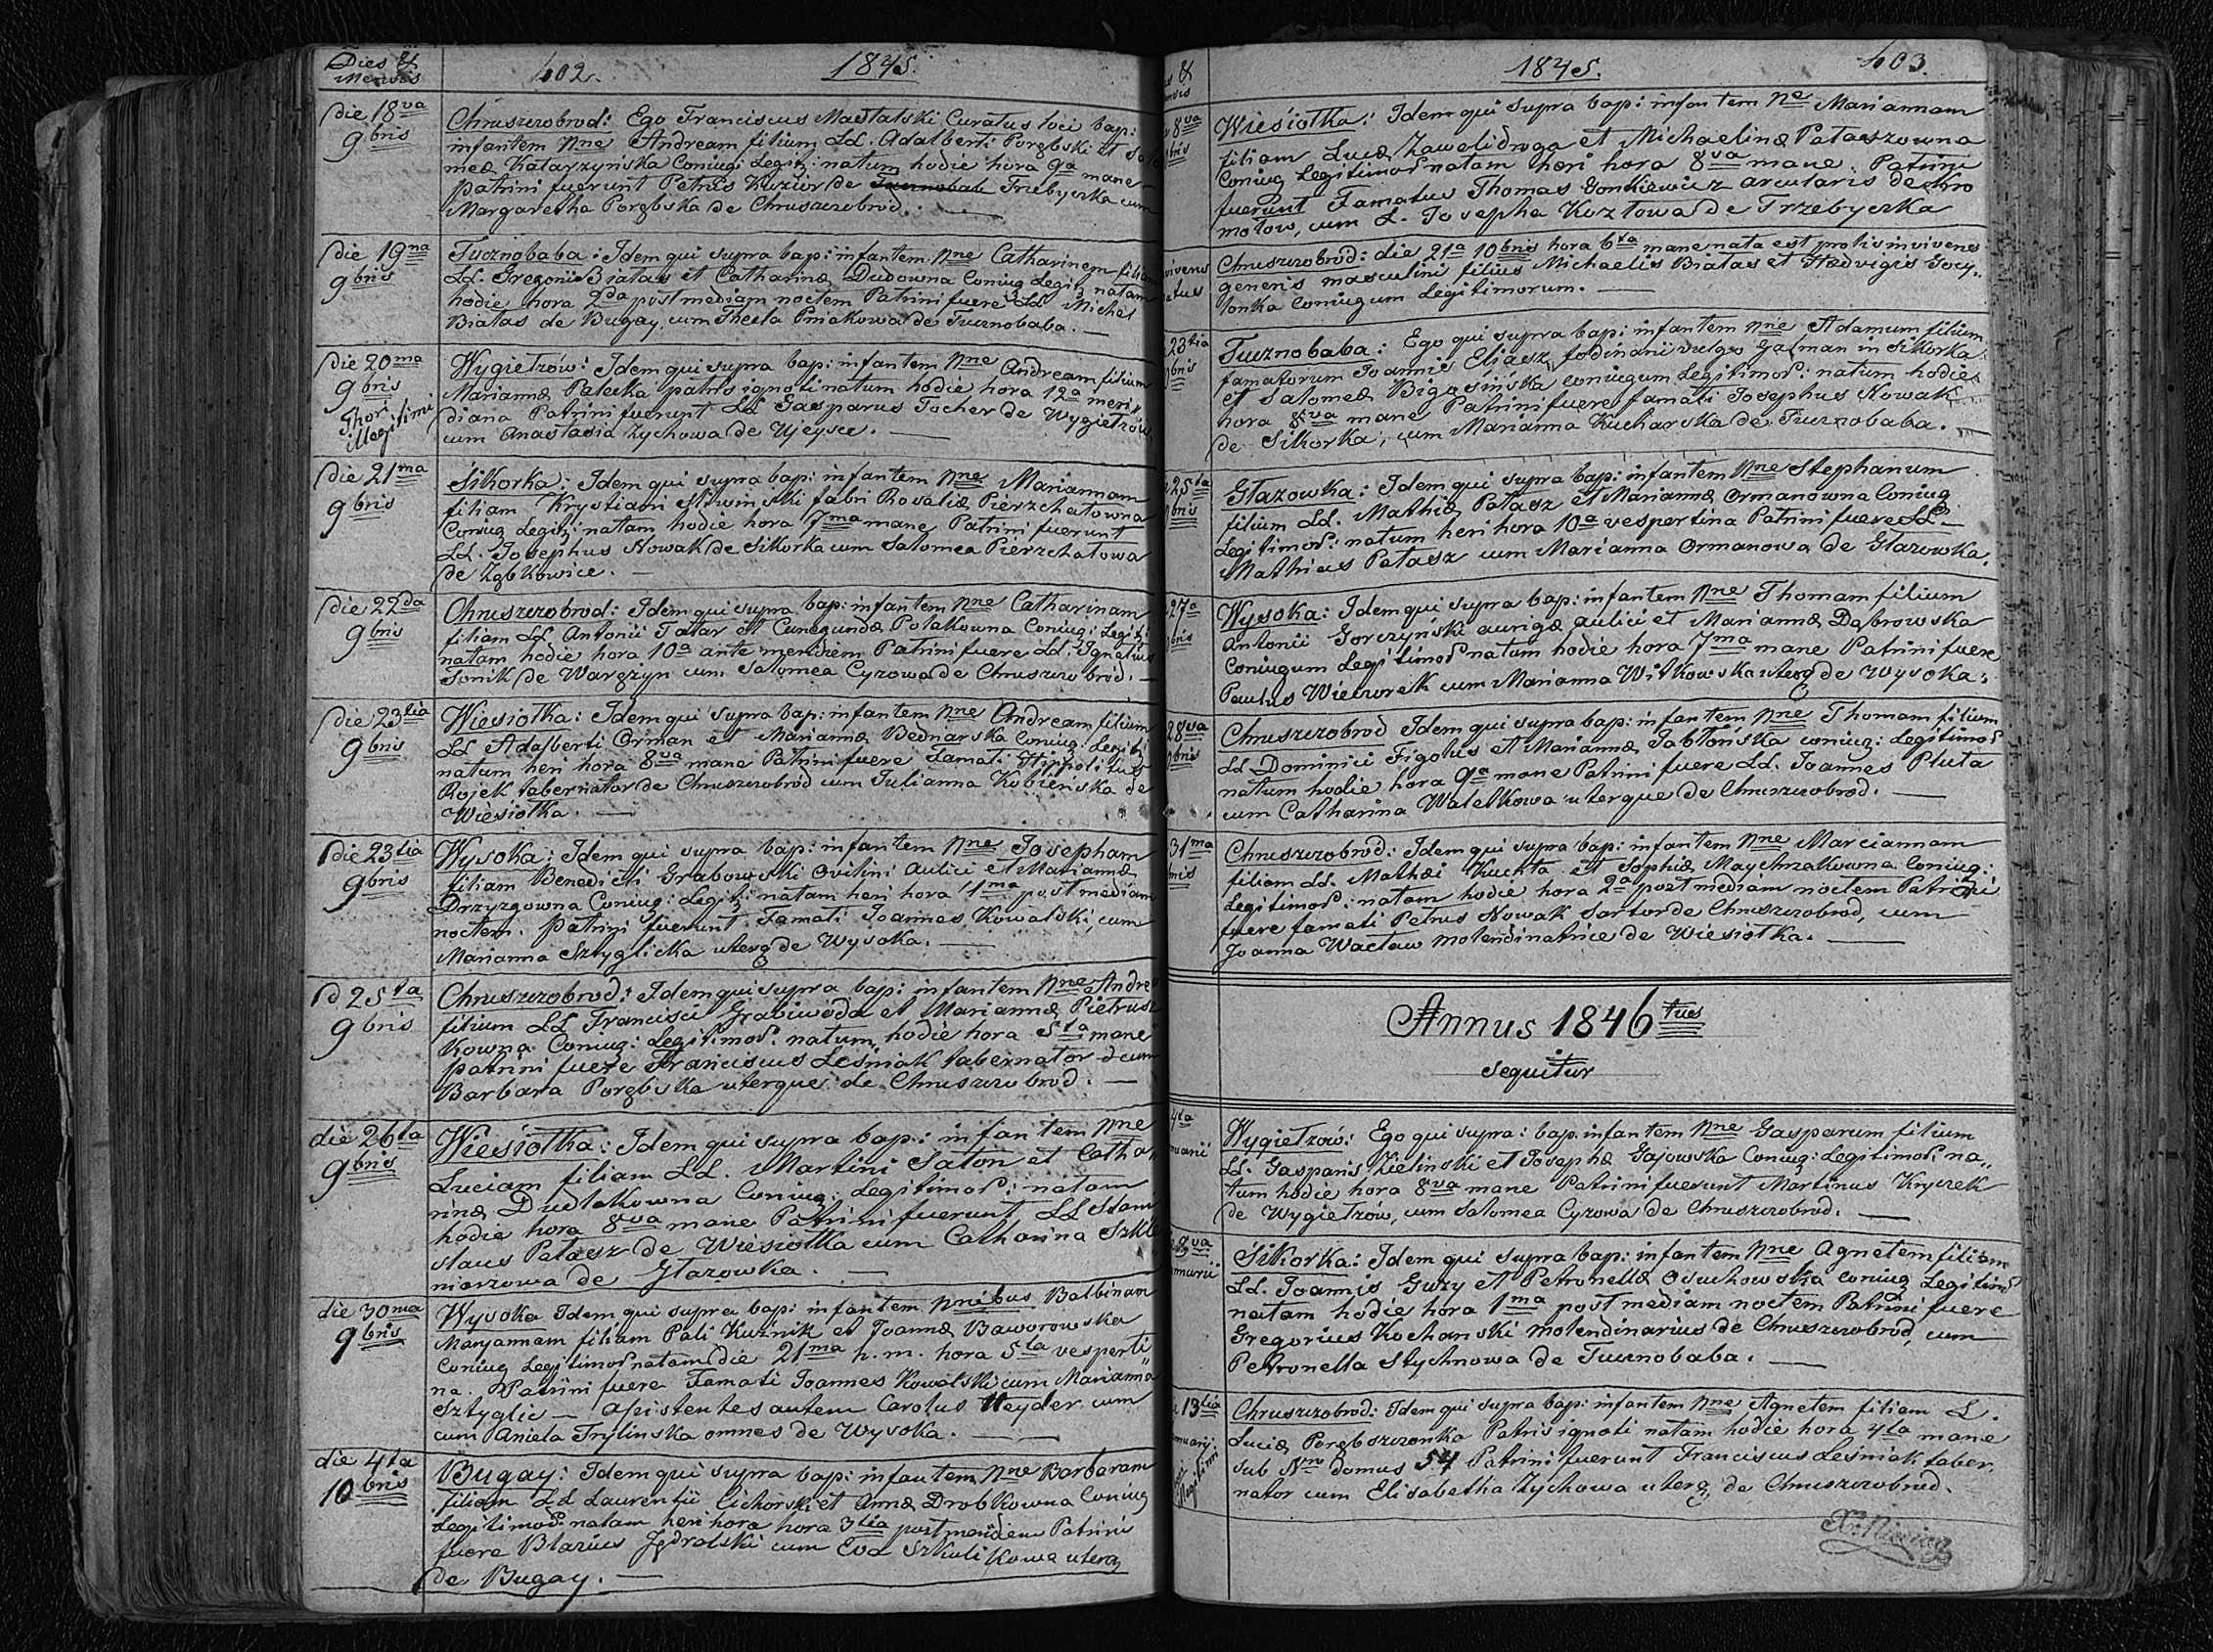 Dies &
Mensis
402.
1845.
Die 18va
9bris
Chruszczobrod: Ego Franciscus Mastalski Curatus loci bap:
infantem Nne Andream filium LL. Adalberti Porębski et Salo
meæ Katarzyńska Coniug: Legit: natum hodie hora 9a mane
patrini fuerunt Petrus Kuzior de Trzebyczka cum
Margaretha Porębska de Chruszczobrod.
Die 19na
9bris
Tucznobaba: Idem qui supra bap: infantem Nne Catharinem filiam
LL. Gregorii Białas et Catharinæ Dudowna Coniug Legit natam
hodie hora 2da post mediam noctem Patrini fuere LL Michel
Białas de Bugay, cum Thecla Pniakowa de Tucznobaba.
Die 20ma
9bris
Thori
illegitimi
Wygiełzów: Idem qui supra bap: infantem Nne Andream filium
Mariannæ Pałecka patris ignoti natum hodie hora 12a meri
diana Patrini fuerunt LL Gasparus Tocher de Wygiełzów
cum Anastasia Zychowa de Ujeysce.
Die 21ma
9bris
Sikorka: Idem qui supra bap: infantem Nne Mariannam
filiam Krystiani Sliwinski fabri Rosaliæ Pierzchałowna
Coniug Legit: natam hodie hora 7ma mane Patrini fuerunt
LL. Josephus Nowak de Sikorka cum Salomea Pierzchałowa
de Ząbkowice.
Die 22da
9bris
Chruszczobrod: Idem qui supra bap: infantem Nne Catharinam
filiam LL Antonii Tatar et Cunegundæ Polakowna Coniug: Legit:
natam hodie hora 10a ante meridiem Patrini fuere LL. Ignatius
Sonik de Warężyn cum Salomea Cyzowa de Chruszczobrod.
Die 23tia
9bris
Wiesiołka: Idem qui supra bap: infantem Nne Andream filium
LL Adalberti Orman et Mariannæ Bednarska Coniug: Legit:
natum heri hora 8va mane Patrini fuere Famati Hippolitus
Rojek tabernator de Chruszczobrod cum Julianna Kobieńska de
Wiesiołka.
Die 23tia
9bris
Wysoka: Idem qui supra bap: infantem Nne Josepham
filiam Benedicti Grabowski Ovilini Aulici et Mariannæ
Drzyzgowna Coniug: Legit: natam heri hora 11ma post mediam
noctem. Patrini fuerunt Famati Joannes Kowalski, cum
Marianna Sztyglicka uterq de Wysoka.
D 25ta
9bris
Chruszczobrod: Idem qui supra bap: infantem Nne Andre
filium LL Francisci Grabiwoda et Mariannæ Pietrusz
kowna Coniug: Legitimor. natum hodie hora 5ta mane
patrini fuere Franciscus Leśniak tabernator cum
Barbara Porębska uterque de Chruszczobrod.
die 26ta
9bris
Wiesiołka: Idem qui supra bap: infantem Nne
Luciam filiam LL. Martini Satoń et Catha
rinæ Dudlakowna Coniug: Legitimor: natam
hodie hora 8va mane Patrini fuerunt LL Stani
slaus Pałasz de Wiesiolka cum Catharina Szkli
niarzowa de Głazowka.
die 30ma
9bris
Wysoka Idem qui supra bap: infantem Nnibus Balbinam
Maryannam filiam Pali Kuźnik et Joannæ Baworowska
Coniug Legitimor natam die 21ma h. m. hora 5ta vesperti
na. Patrini fuere Famati Joannes Kowalski cum Marianna
Sztyglic — Assistentes autem Carolus Heyder cum
cum Aniela Trylinska omnes de Wysoka.
die 4ta
10bris
Bugay: Idem qui supra bap: infantem Nne Barbaram
filiam LL Laurentii Cichorski et Annæ Drobkowna Coniug
Legitimor. natam heri hora hora 3tia post meridiem Patrini
fuere Blasius Jędralski cum Eva Szkulikowa uterq
de Bugay.
1845.
403.
8va
Wiesiołka: Idem qui supra bap: infantem Nne Mariannam
filiam Lucæ Zawalidroga et Michaelinæ Pałaszowna
Coniug Legitimor natam heri hora 8va mane. Patrini
fuerunt Famatus Thomas Gonkiewicz arcularis de Kro
mołow, cum L. Josepha Kozłowa de Trzebyczka
Chruszczobrod: die 21a 10bris hora 6ta mane nata est prolis invivens
generis masculini filius Michaelis Białas et Hedvigis Gocy
łonka Coniugum Legitimorum.
23tia
Tucznobaba: Ego qui supra bap: infantem Nne Adamum filium
famatorum Joannis Eliasz fodinarii vulgo Galman in Sikorka
et Salomeæ Bigosińska coniugum Legitimor: natum hodie
hora 8va mane Patrini fuere famati Josephus Nowak
de Sikorka, cum Marianna Kucharska de Tucznobaba.
25ta
Głazowka: Idem qui supra bap: infantem Nne Stephanum
filium LL. Mathiæ Pałasz et Mariannæ Ormanowna Coniug
Legitimor: natum heri hora 10a vespertina Patrini fuere LL.
Mathias Pałasz cum Marianna Ormanowa de Głazowka.
27a
Wysoka: Idem qui supra bap: infantem Nne Thomam filium
Antonii Gorczyński aurigæ aulici et Mariannæ Dąbrowska
Coniugum Legitimor natum hodie hora 7ma mane Patrini fuere
Paulus Wieczorek cum Marianna Witkowska uterq de Wysoka.
28va
Chruszczobrod Idem qui supra bap: infantem Nne Thomam filium
LL Dominici Figolus et Mariannæ Jabłońska coniug: Legitimor
natum hodie hora 9a mane Patrini fuere LL. Joannes Pluta
cum Catharina Walełkowa uterque de Chruszczobrod.
31ma
Chruszczobrod: Idem qui supra bap: infantem Nne Marciannam
filiam LL. Mathæi Kuchta et Sophiæ Maychrzakowna Coniug:
Legitimor: natam hodie hora 2a post mediam noctem Patrini
fuere famati Petrus Nowak Sartor de Chruszczobrod, cum
Joanna Wacław molendinatrice de Wiesiołka.
Annus 1846tus
sequitur
4ta
Wygiełzów: Ego qui supra: bap. infantem Nne Gasparum filium
LL. Gasparis Zielinski et Josephæ Gajowska Coniug: Legitimor. na
tum hodie hora 8va mane Patrini fuerunt Martinus Kryczek
de Wygiełzów, cum Salomea Cyzowa de Chruszczobrod.
8va
Sikorka: Idem qui supra bap: infantem Nne Agnetem filiam
LL. Joannis Guzy et Petronellæ Osuchowska coniug Legitimor
natam hodie hora 1ma post mediam noctem Patrini fuere
Gregorius Kochanski molendinarius de Chruszczobrod, cum
Petronella Stychnowa de Tucznobaba.
13tia
Chruszczobrod: Idem qui supra bap: infantem Nne Agnetem filiam L.
Luciæ Porębszczonka Patris ignoti natam hodie hora 4ta mane
sub Nro domus 54 Patrini fuerunt Franciscus Leśniak taber
nator cum Elisabetha Zychowa uterq de Chruszczobrod.